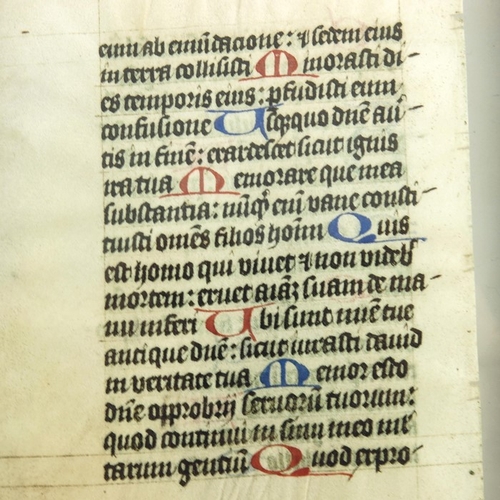 eum ab emūdacione: ⁊ sedem eius
in terra collisisti Minorasti di-
es temporis eius: ꝑfudisti eum
confusione Usq̄quo dūe aū-
tis in finē: exardescet sicut ignis
ira tua Memorare que mea
substantia: nūq̄ eni vane consti-
tuisti omēs filios hoīm Quis
est homo qui viuet ⁊ non videb̄
mortem: eruet aīaꝫ suam de ma-
nu inferi Ubi sunt mīe tue
antique dūe: sicut iurasti dauid
in veritate tua Memor esto
dūe opprobrij seruorū tuorum:
quod continui in sinu meo ml̄-
tarum gentiū Quod expro-